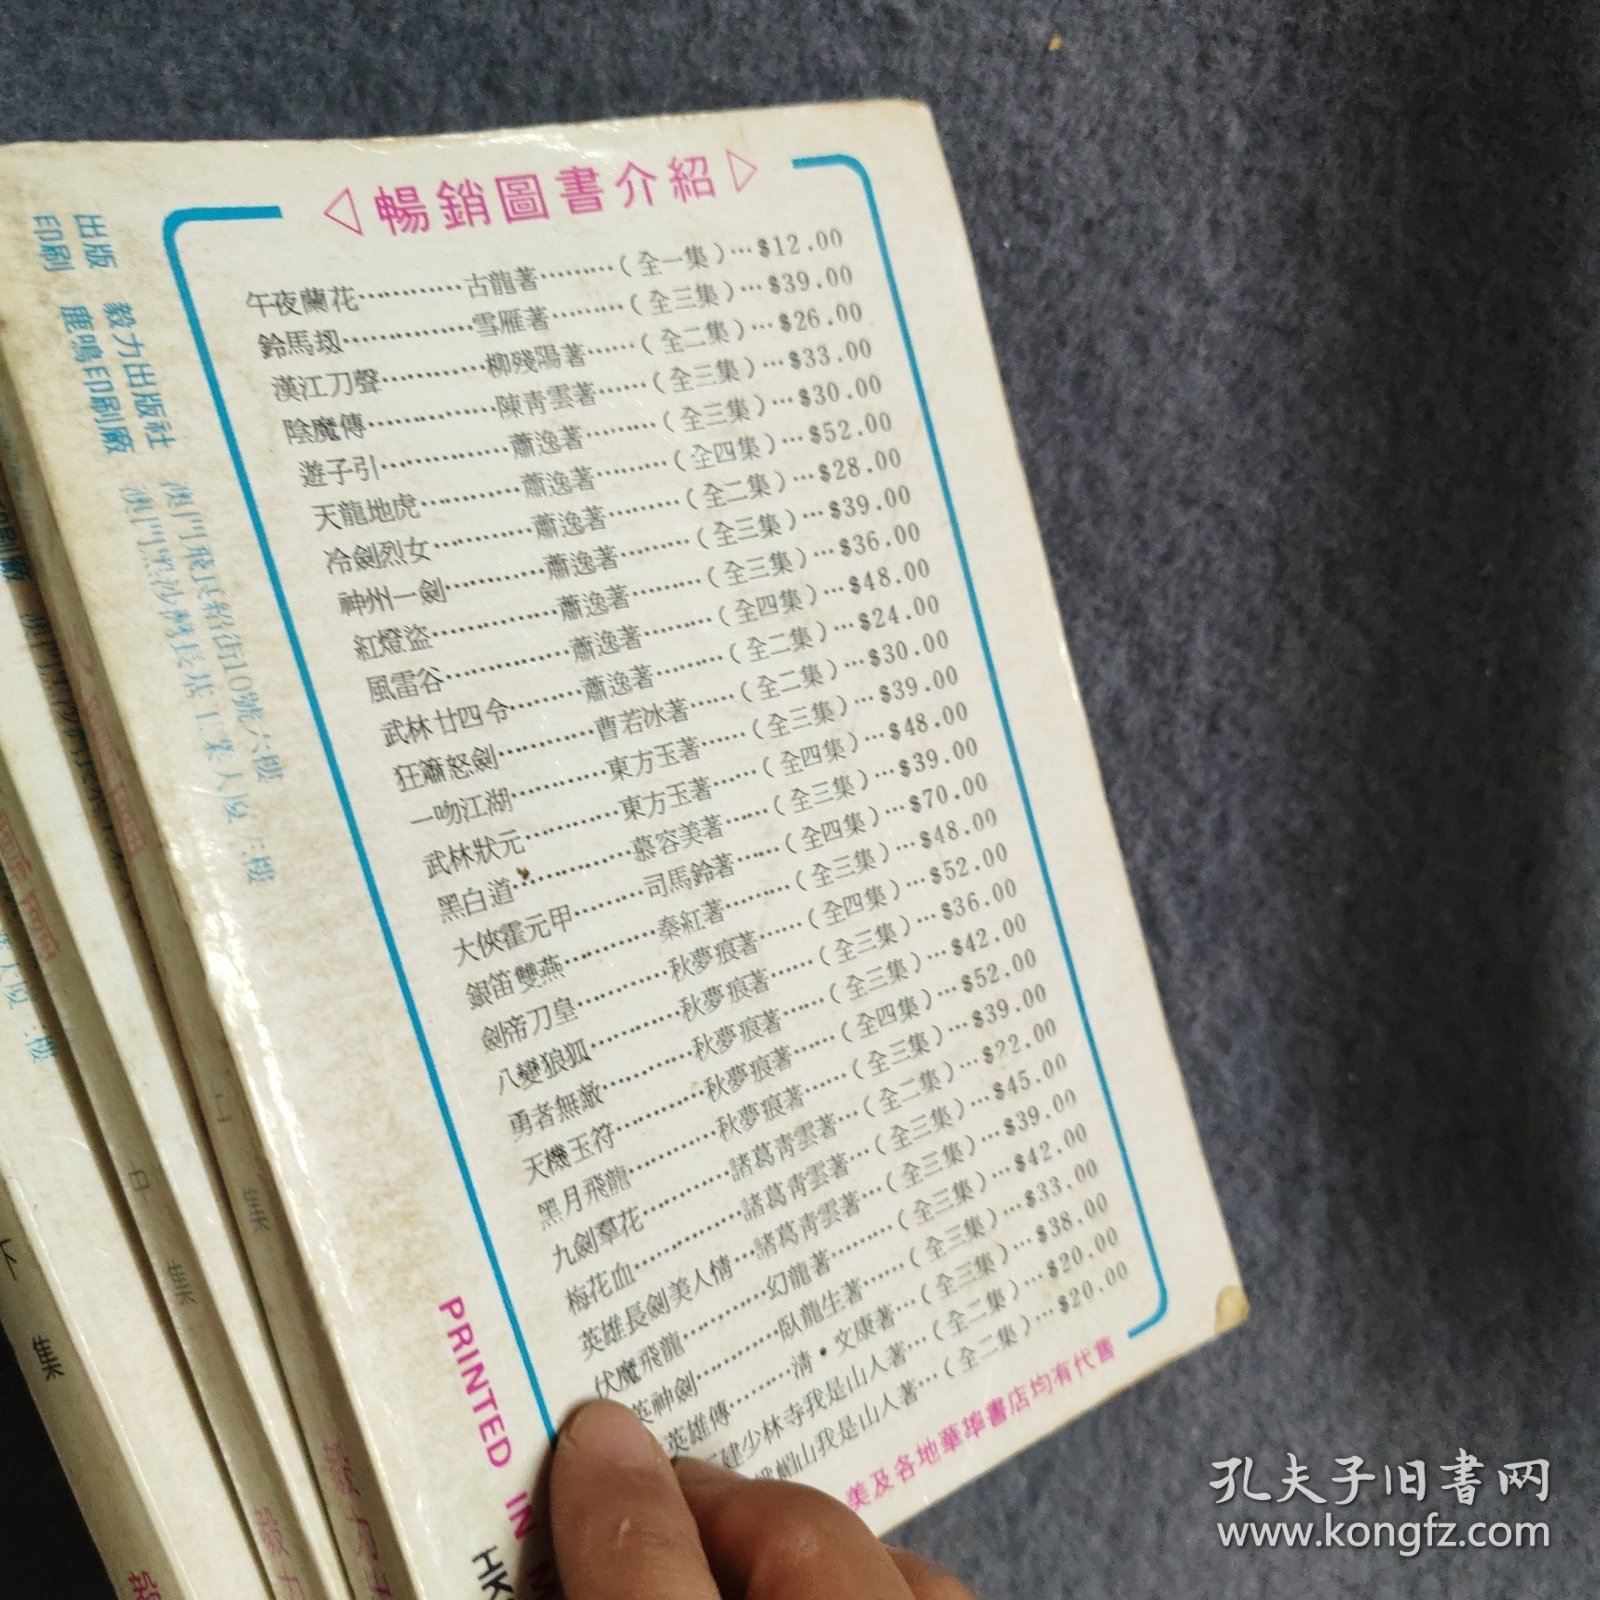 ◁暢銷圖書介紹▷
午夜蘭花…………古龍著………(全一集)…$12.00
鈴馬翃……………雪雁著………(全三集)…$39.00
漢江刀聲…………柳殘陽著……(全二集)…$26.00
陰魔傳……………陳青雲著……(全三集)…$33.00
遊子引……………蕭逸著………(全三集)…$30.00
天龍地虎…………蕭逸著………(全四集)…$52.00
冷劍烈女…………蕭逸著………(全二集)…$28.00
神州一劍…………蕭逸著………(全三集)…$39.00
紅燈盜……………蕭逸著………(全三集)…$36.00
風雷谷……………蕭逸著………(全四集)…$48.00
武林廿四令………蕭逸著………(全二集)…$24.00
狂簫怒劍…………曹若冰著……(全二集)…$30.00
一吻江湖…………東方玉著……(全三集)…$39.00
武林狀元…………東方玉著……(全四集)…$48.00
黑白道……………慕容美著……(全三集)…$39.00
大俠霍元甲………司馬鈴著……(全四集)…$70.00
銀笛雙燕…………秦紅著………(全三集)…$48.00
劍帝刀皇…………秋夢痕著……(全四集)…$52.00
八變狼狐…………秋夢痕著……(全三集)…$36.00
勇者無敵…………秋夢痕著……(全三集)…$42.00
天機玉符…………秋夢痕著……(全四集)…$52.00
黑月飛龍…………秋夢痕著……(全三集)…$39.00
九劍羣花…………諸葛青雲著…(全二集)…$22.00
梅花血……………諸葛青雲著…(全三集)…$45.00
英雄長劍美人情…諸葛青雲著…(全三集)…$39.00
伏魔飛龍…………幻龍著………(全三集)…$42.00
英神劍…………臥龍生著……(全三集)…$33.00
英雄傳………清·文康著…(全三集)…$38.00
建少林寺我是山人著…(全二集)…$20.00
山我是山人著…(全二集)…$20.00
美及各地華埠書店均有代售
出版 毅力出版社 澳門飛良紹街10號六樓
印刷 鹿鳴印刷廠 澳門黑沙灣長
PRINTED IN
HK
上集
中集
下集
毅力
毅力
孔夫子旧書网
www.kongfz.com